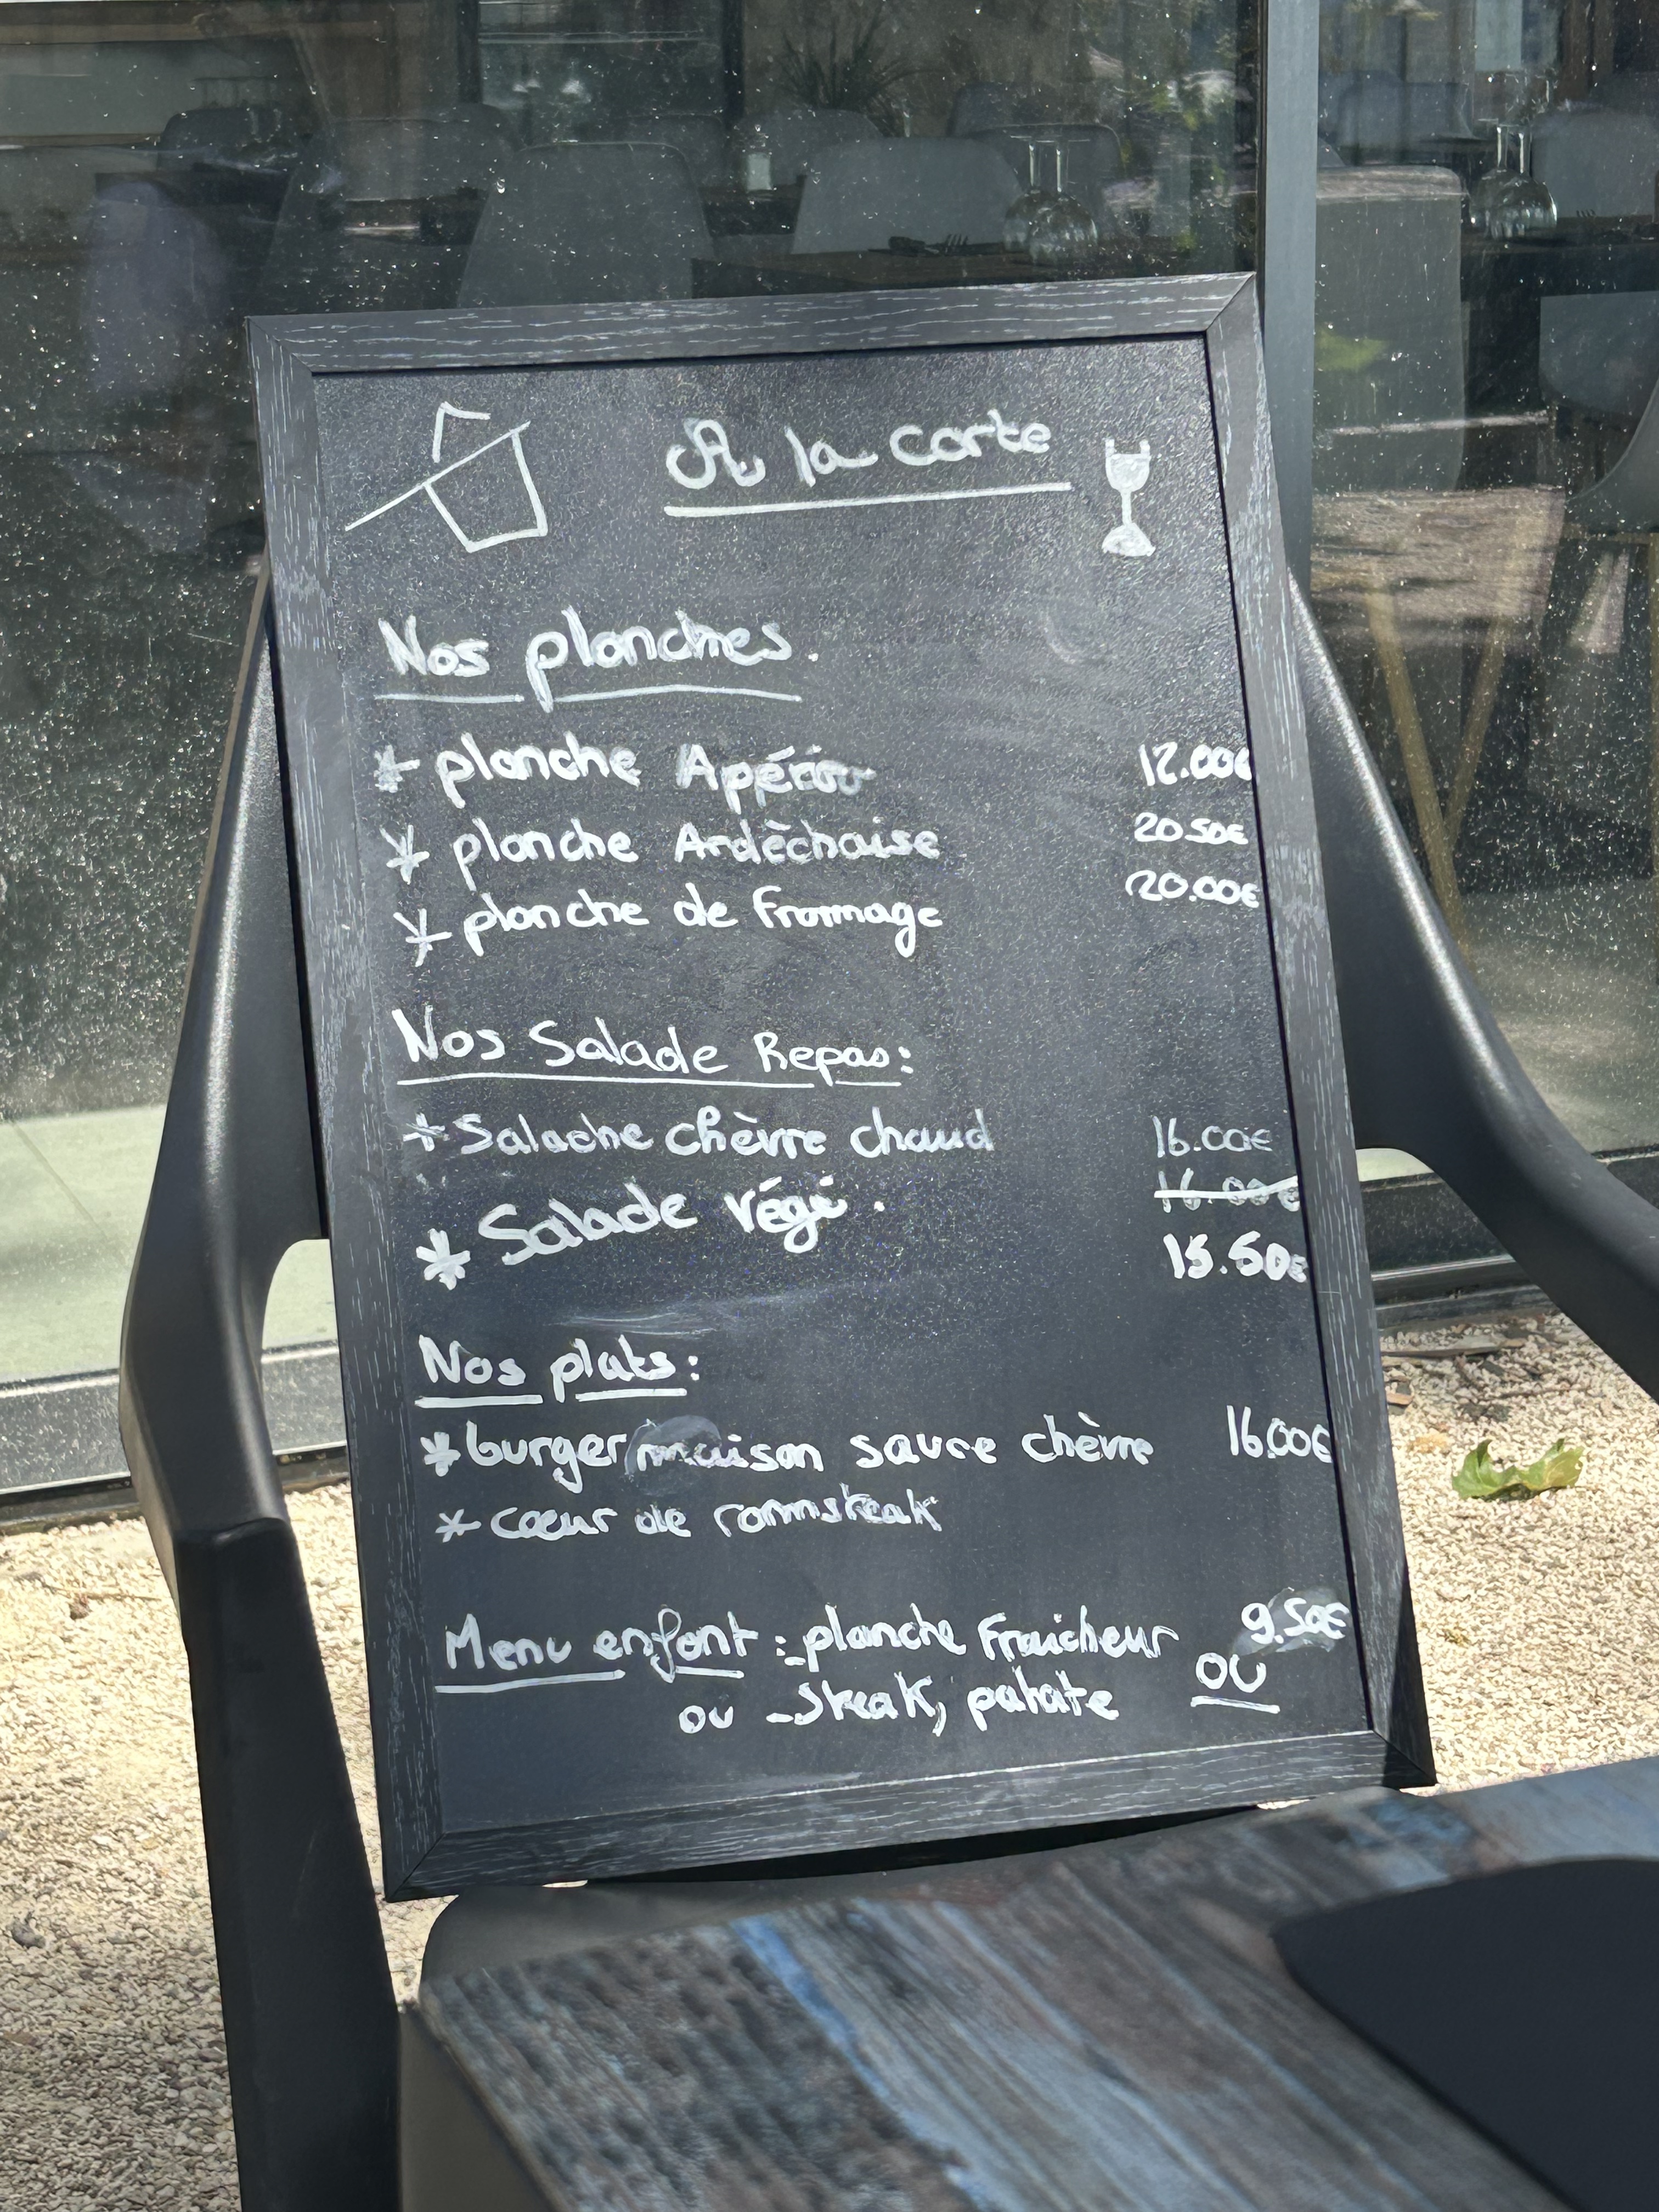 A la carte
Nos planches.
* planche Apéro 12.00€
* planche Ardèchaise 20.50€
* planche de fromage 20.00€
Nos Salade Repas:
* Salache chèvre chaud 16.00€
* Salade végé. 16.00€
15.50€
Nos plats:
* burger maison sauce chèvre 16.00€
* cœur de rommsteak
Menu enfant: - planche Fraicheur 9.50€
ou - Steak, patate ou